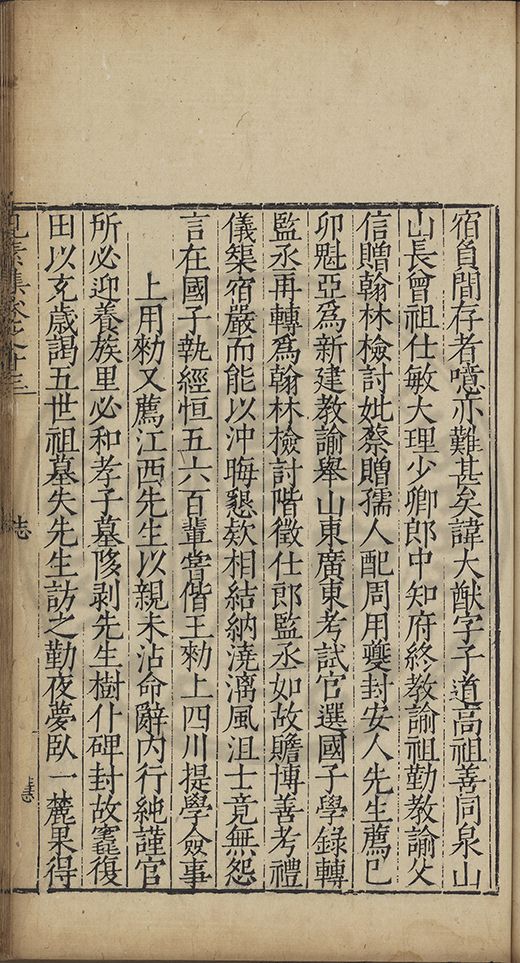 宿負間存者噫亦難甚矣諱大猷字子道高祖善同泉山
山長曾祖仕敏大理少卿郎中知府終教諭祖勤教諭父
信贈翰林檢討妣蔡贈孺人配周用䕫封安人先生薦已
卯魁亞爲新建教諭舉山東廣東考試官選國子學錄轉
監丞再轉爲翰林檢討階徵仕郎監丞如故贍博善考禮
儀榘宿嚴而能以沖晦懇欵相結納澆漓風沮士竟無怨
言在國子執經恒五六百輩嘗偕王勑上四川提學僉事
上用勑又薦江西先生以親未沾命辭内行純謹官
所必迎養族里必和孝子墓陊剥先生樹仆碑封故竁復
田以充歲謁五世祖墓失先生訪之勤夜夢臥一麓果得
見素集卷之十三
志